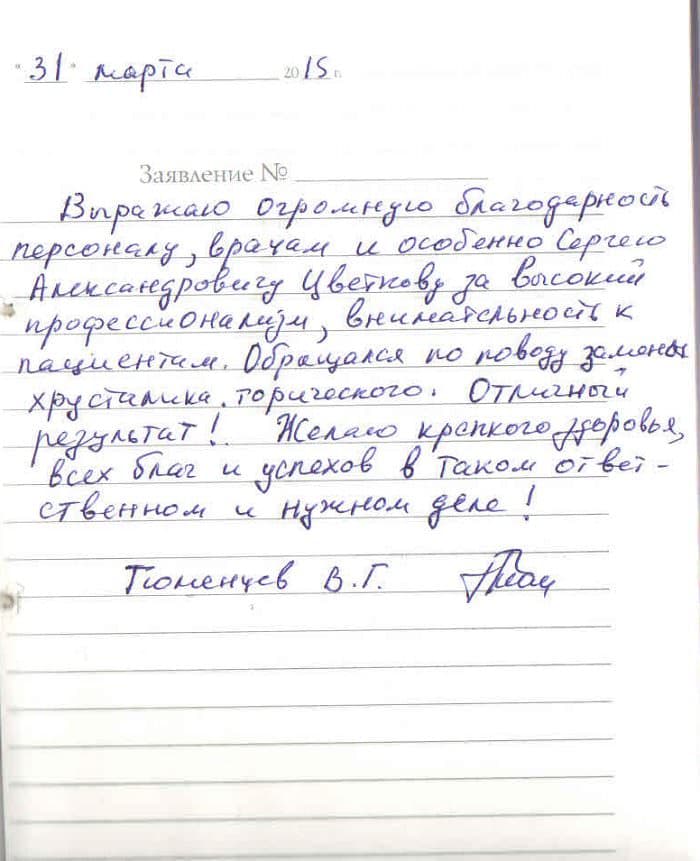 "31" марта 2015 г.
Заявление №
Выражаю огромную благодарность
персоналу, врачам и особенно Сергею
Александровичу Цветкову за высокий
профессионализм, внимательность к
пациентам. Обращался по поводу замены
хрусталика. торического. Отличный
результат! Желаю крепкого здоровья,
всех благ и успехов в таком ответ-
ственном и нужном деле!
Тюменцев В.Г.